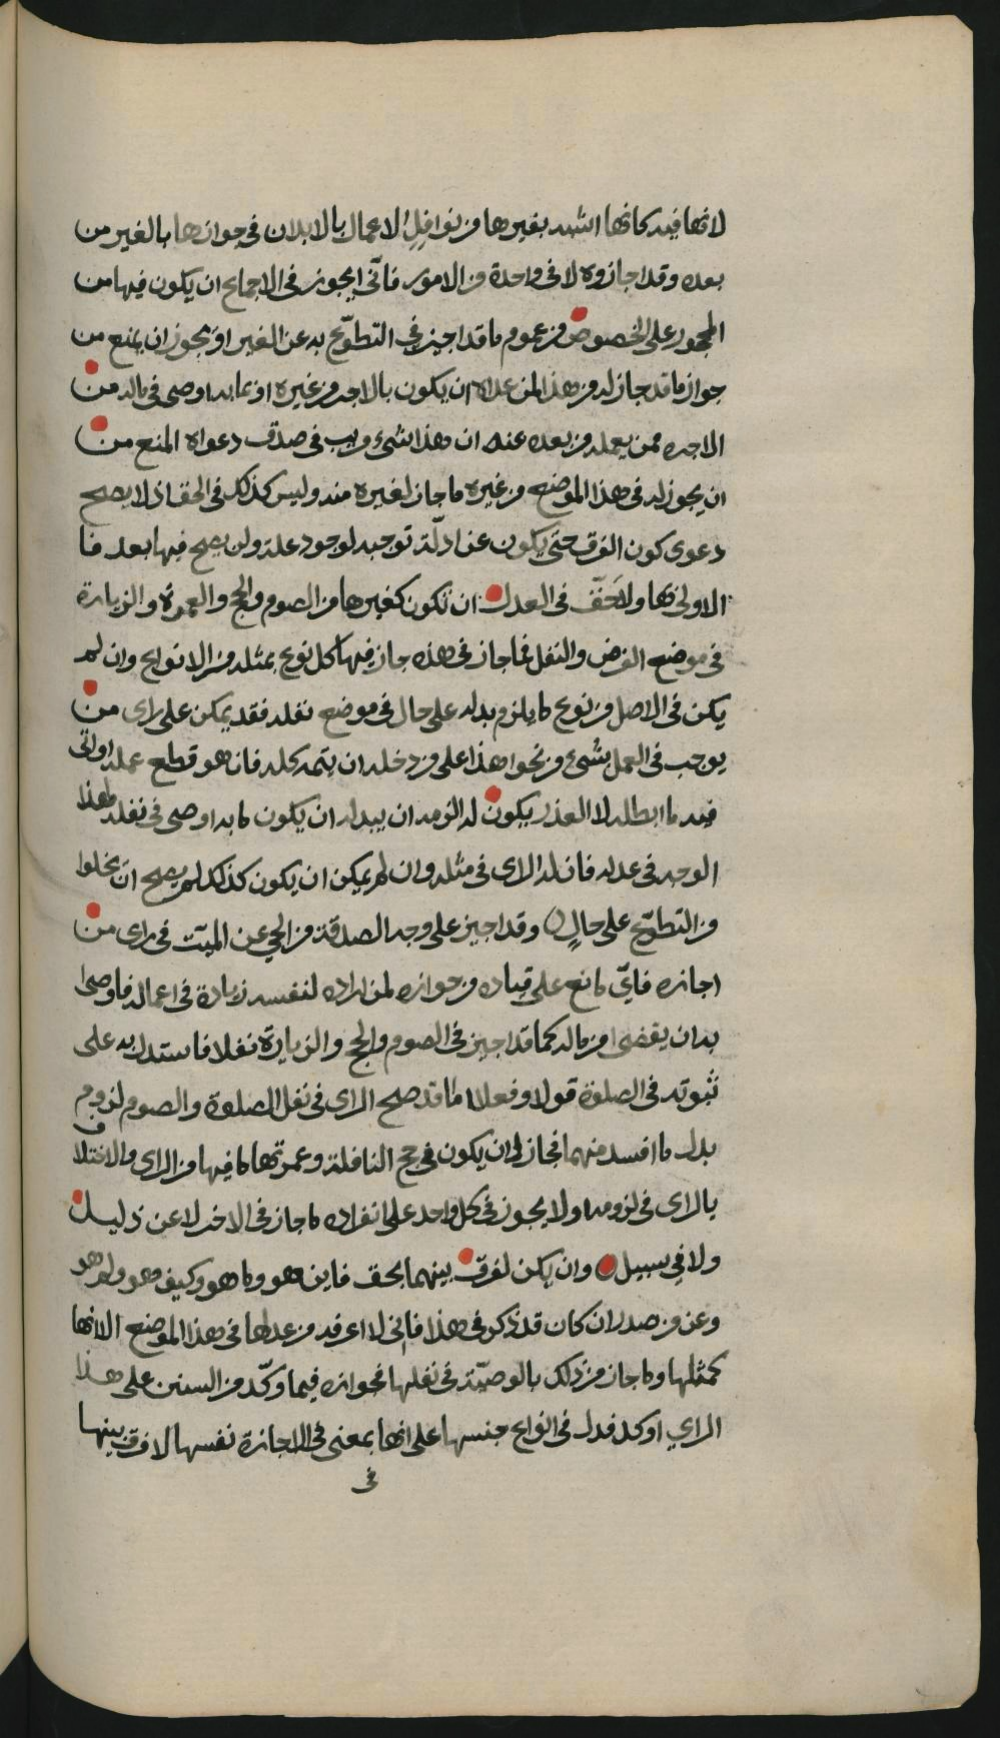 لانها فيه كانها اشبه بغيرها من نوافل الاعمال بالابدان في جوازها بالغير من
بعده وقد اجازوه لا في واحدة من الامور فانّى يجوز في الاجماع ان يكون فيها من
المحجور على الخصوص من عموم ما قد اجيز في التطوّع به عن الغير او يجوز ان يمنع من
جواز ما قد جاز له من هذا لمن عداه ان يكون بالاجر من غيره او بما به اوصى في ماله من
الاجره ممن يعمله من بعده عنه ان هذا لشيء وريب في صدق دعواه المنع من
ان يجوز له في هذا الموضع من غيره ما جاز لغيره منه وليس كذلك في الحق اذ لا يصح
دعوى كون الفرق حتى يكون عن ادلّة توجبه لوجود علة ولن يصح فيها بعد فما
الاولى بها ولاحق في العدل ان تكون كغيرها من الصوم والحج والعمرة والزيارة
في موضع الفرض والنفل فما جاز في هذه جاز فيها كل نوع بمثله من الانواع وان لم
يكن في الاصل من نوع ما يلزم بدله على حال في موضع نفله فقد يمكن على راى من
يوجب في العمل بشيء من نحوا هذا على من دخله ان يتمه كله فان هو قطع عمله او اتى
فيه ما ابطله لا لعذر يكون له الزمه ان يبدله ان يكون ما به اوصى في نفله لهذا
الوجه في عدله فان له الراى في مثله وان لم يمكن ان يكون كذلك لم يصح ان يخلوا
من التطوّع على حالٍ وقد اجيز على وجه الصدقة من الحي عن الميّت في راى من
اجازه فايّ مانع على قياده من جوازه لمن اراده لنفسه زيادة في اعماله فاوصى
به ان يقضى من ماله كما قد اجيز في الصوم والحج والزيارة نفلا فاستدل به على
ثبوته في الصلوة قولا وفعلا اما قد صح الراى في نفل الصلوة والصوم لزوم
بدل ما افسد منهما فجاز لان يكون في حج النافلة وعمرتها ما فيها من الراى والاختلاف
بالراى في لزومه ولا يجوز في كل واحد على انفراده ما جاز في الاخر لا عن دليل
ولا في سبيل وان يكن لفرق بينهما بحق فاين هو وما هو وكيف هو ولم هو
وعن من صدر ان كان قد ذكر في هذا فاني لا اعرفه من عدلها في هذا الموضع الا انها
كمثلها وما جاز من ذلك بالوصيّة في نفلها فجوازه فيما وكّد من السنن على هذا
الراي اوكد فدل في انواع جنسها على انها بمعنى في الاجازة نفسها لا فرق بينها
في